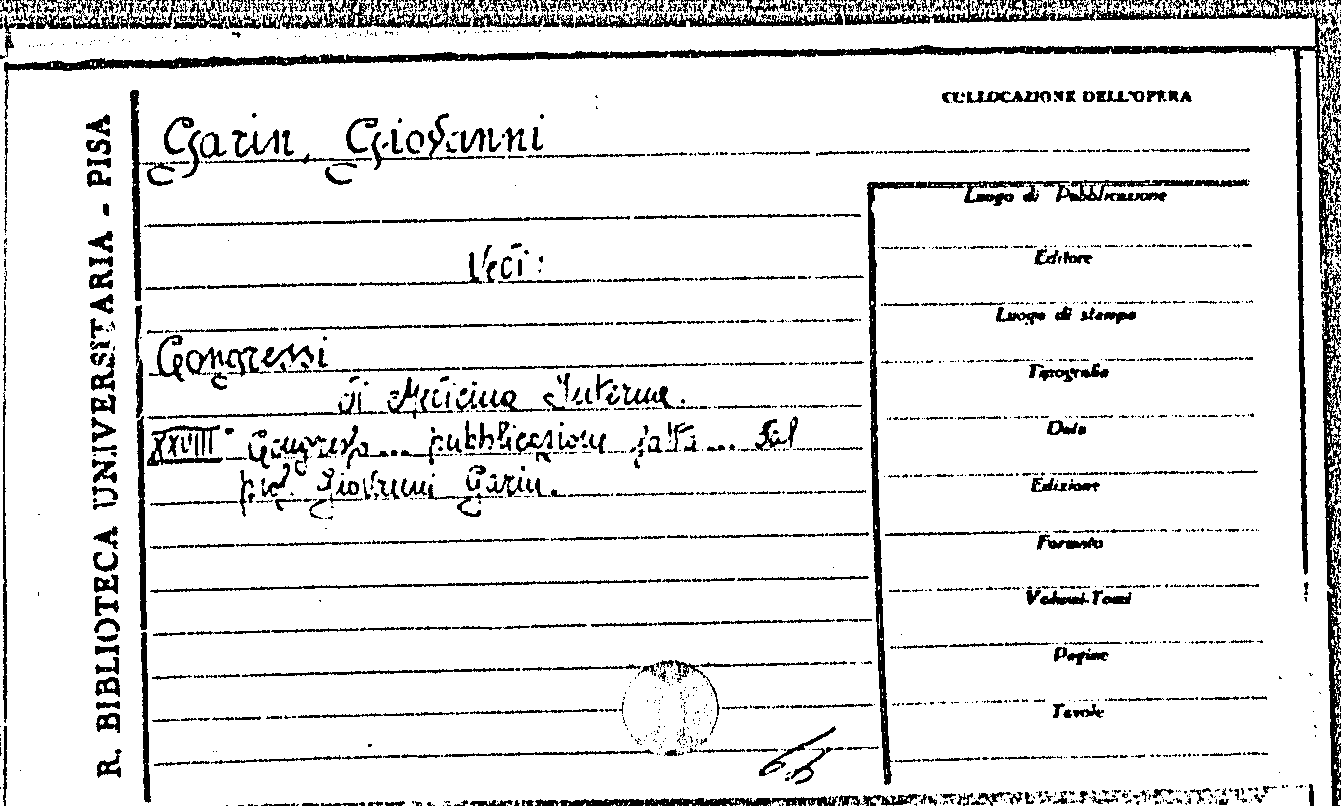 R. BIBLIOTECA UNIVERSITARIA - PISA
COLLOCAZIONE DELL'OPERA
Garin, Giovanni
Vedi:
Congressi
di Medicina Interna.
XXVIII° Congresso... pubblicazione fatta... dal
prof. Giovanni Garin.
Luogo di Pubblicazione
Editore
Luogo di stampa
Tipografia
Data
Edizione
Formato
Volumi-Tomi
Pagine
Tavole